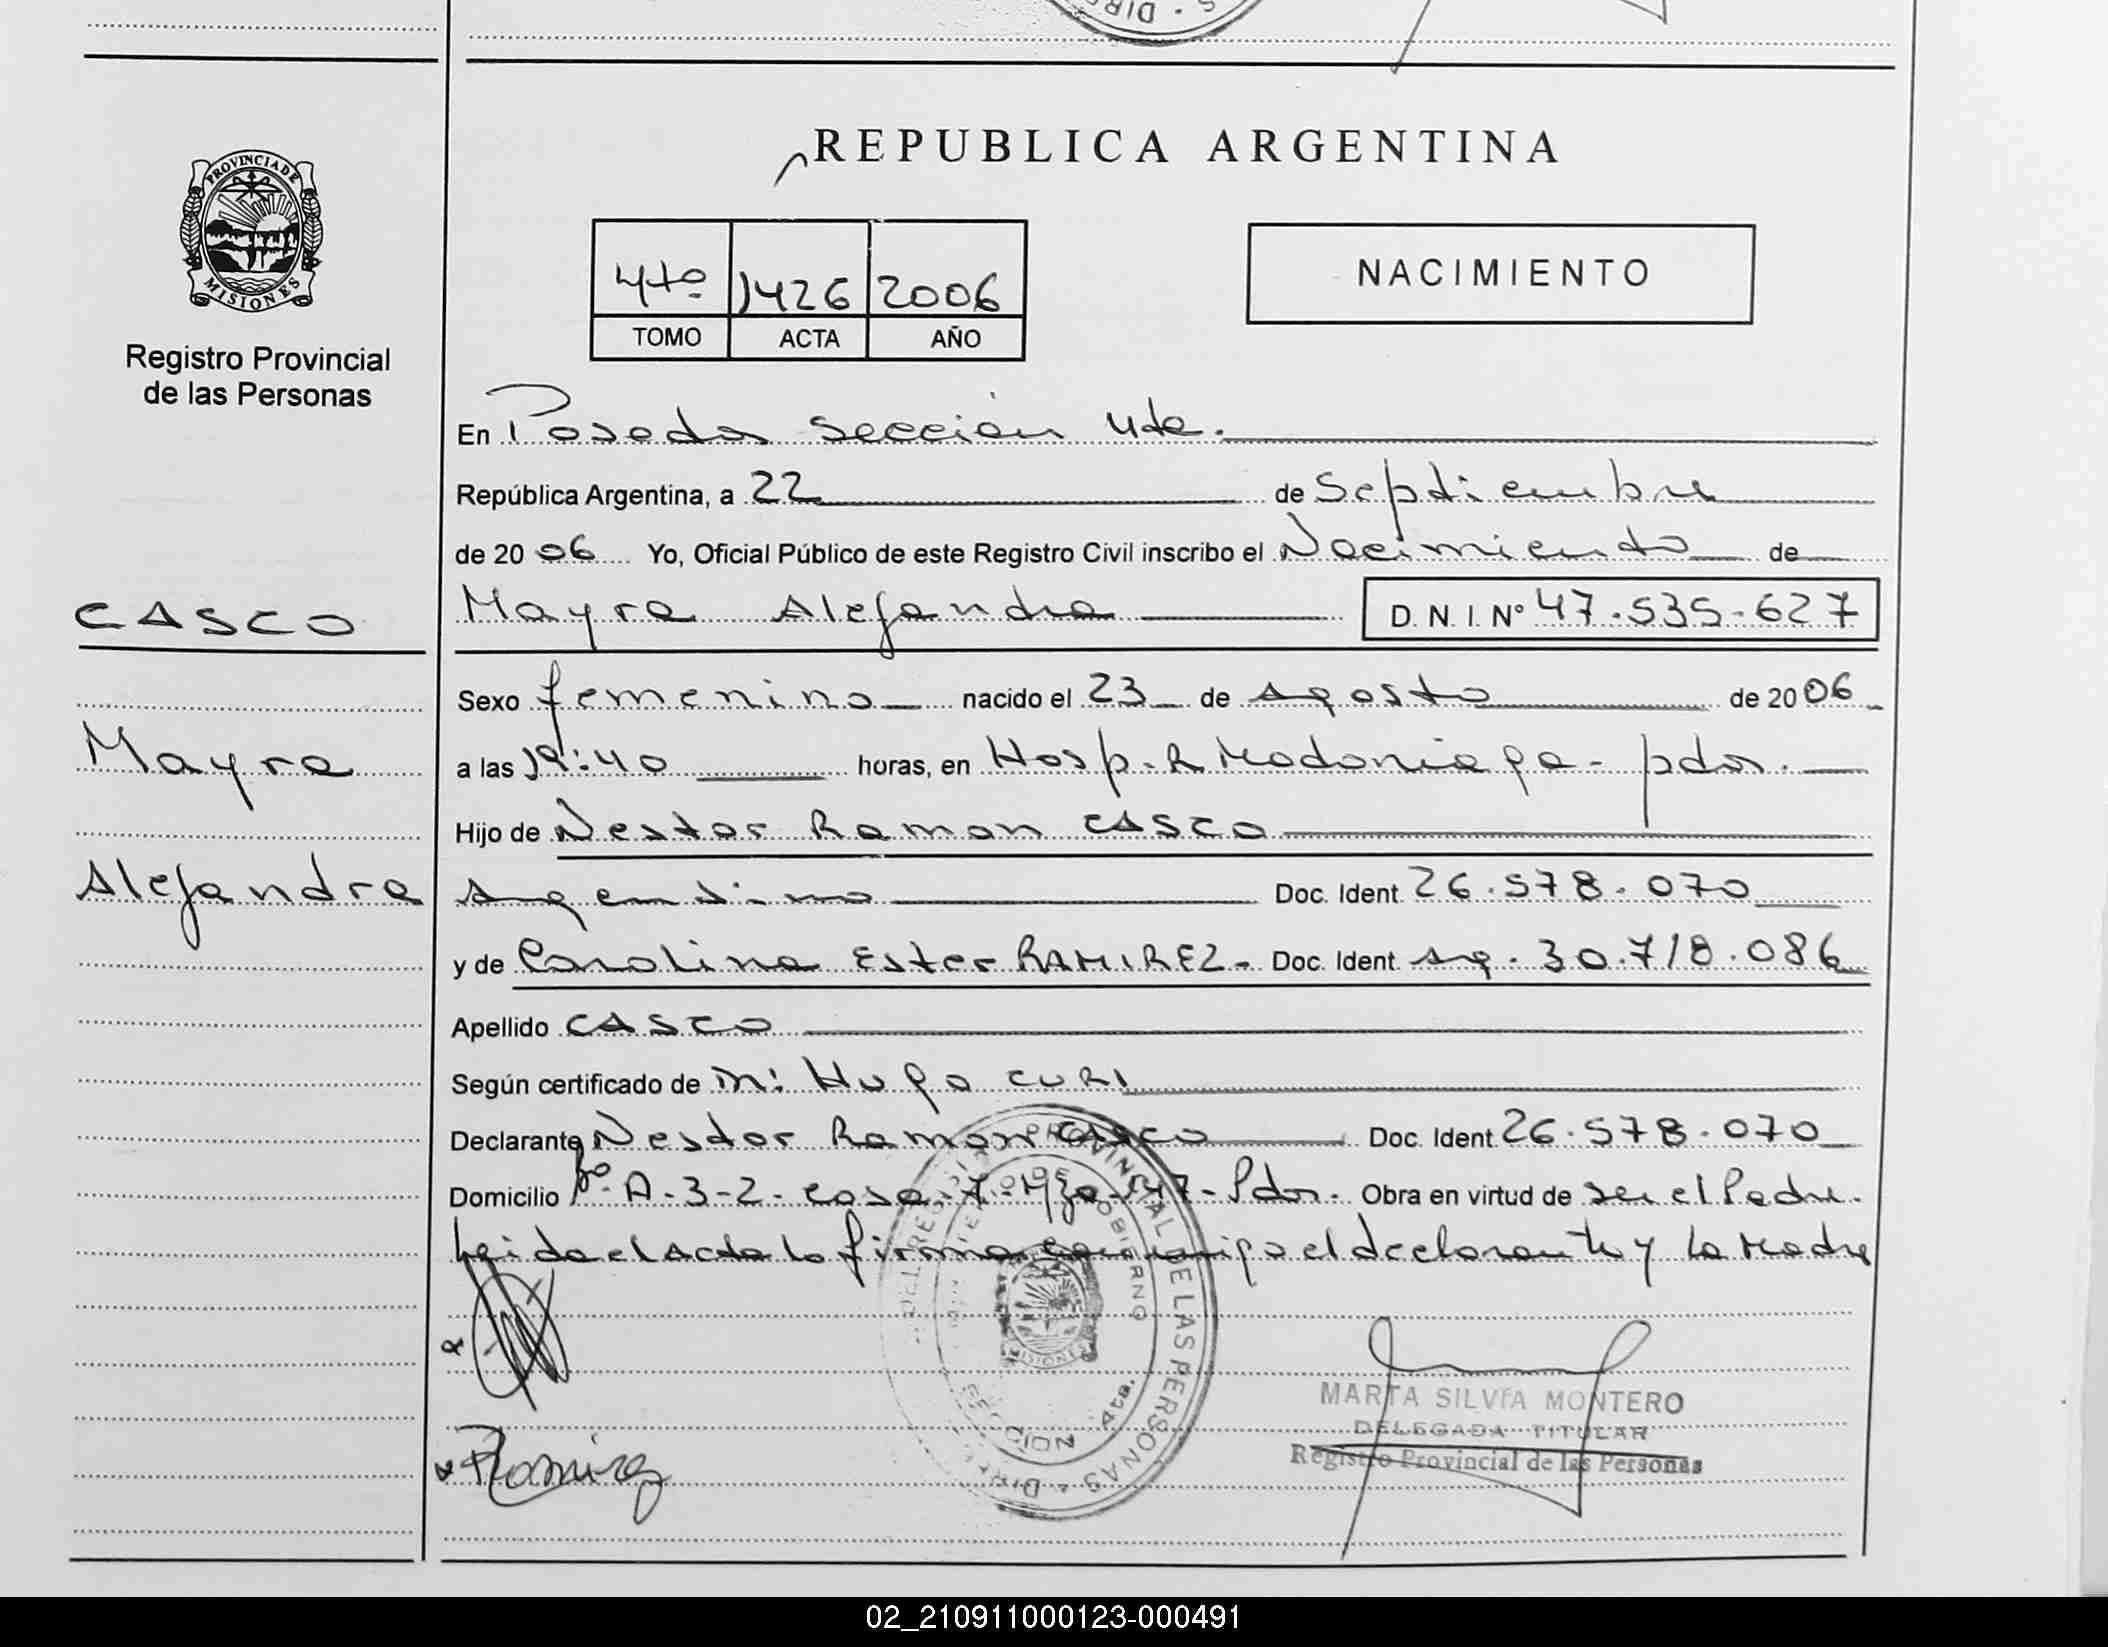 REPUBLICA ARGENTINA
PROVINCIA DE
MISIONES
Registro Provincial
de las Personas
4to 1426 2006
TOMO ACTA AÑO
NACIMIENTO
En Posadas sección 4ta.
República Argentina, a 22 de Septiembre
de 2006 Yo, Oficial Público de este Registro Civil inscribo el Nacimiento de
CASCO
Mayra Alejandra D. N. I. Nº 47.535.627
Sexo femenino nacido el 23 de Agosto de 2006
Mayra
a las 19:40 horas, en Hosp. R Madariaga - pdas.
Hijo de Nestor Ramon CASCO
Alejandra
Argentino Doc. Ident. 26.578.070
y de Carolina Ester RAMIREZ. Doc. Ident. Arg. 30.718.086
Apellido CASCO
Según certificado de m: Hugo CURI
Declarante Nestor Ramon CASCO Doc. Ident. 26.578.070
Domicilio Bº. A-3-2- casa-7-Mza-147- Pdas. Obra en virtud de ser el Padre.
Leida el Acta la firma conmigo el declarante y la Madre
REGISTRO PROVINCIAL DE LAS PERSONAS
GOBIERNO
MISIONES
SECCION 4ta.
Ramirez
MARTA SILVIA MONTERO
DELEGADA TITULAR
Registro Provincial de las Personas
02_210911000123-000491